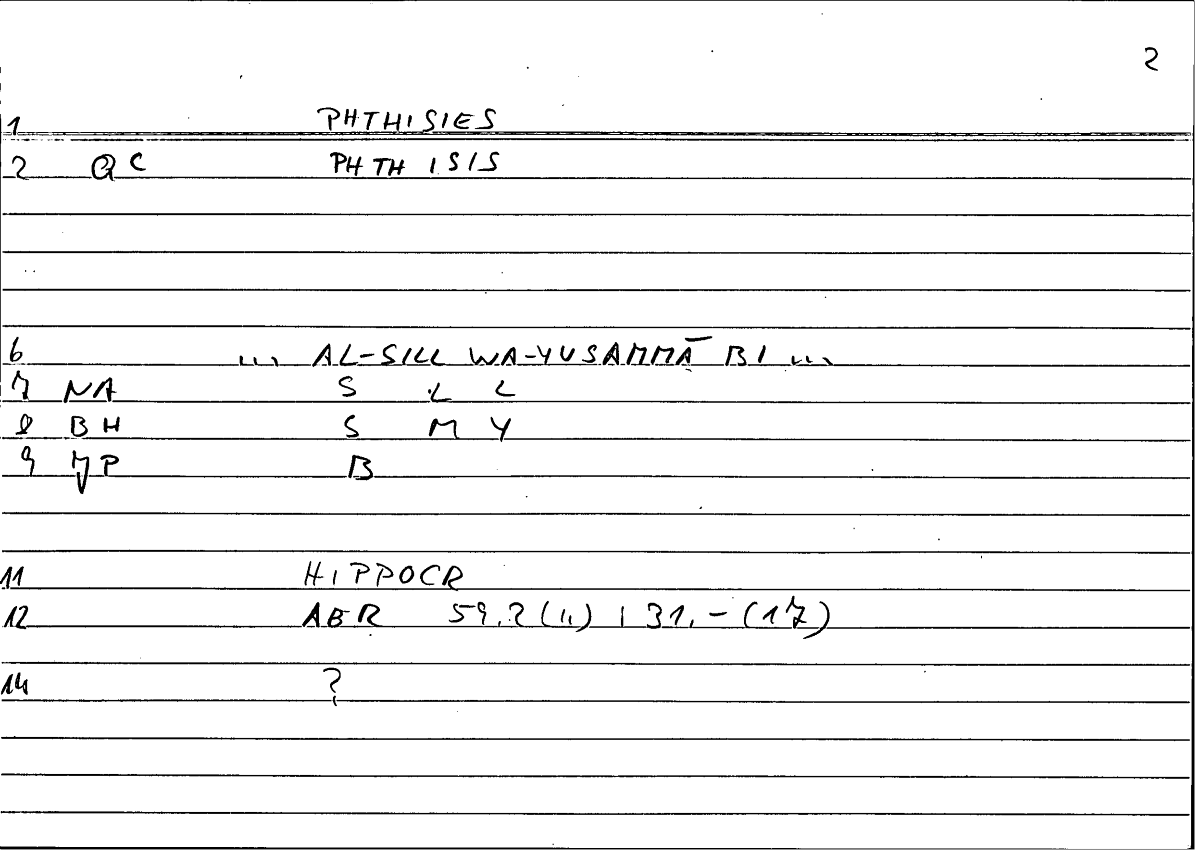 2
1 PHTHISIES
2 QC PHTHISIS
6 ... AL-SILL WA-YUSAMMĀ BI ...
7 NA S L L
8 BH S M Y
9 JP B
11 HIPPOCR
12 AER 59.2(11) | 31.-(17)
14 ?